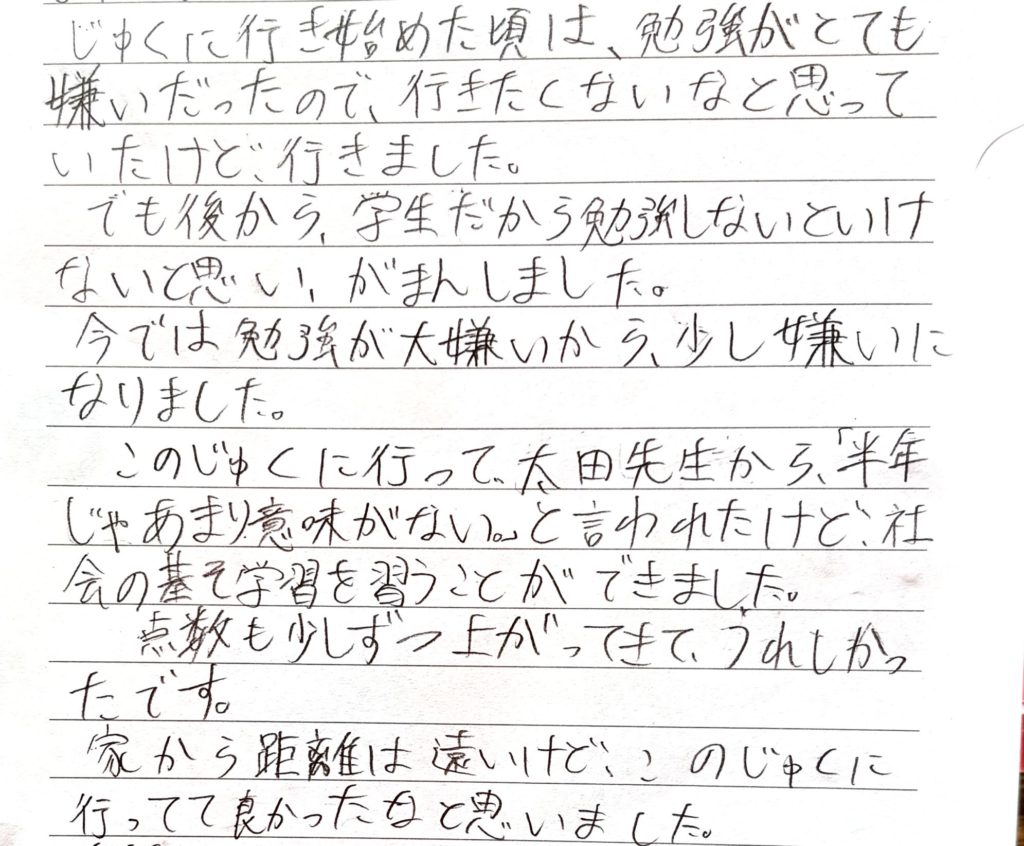 じゅくに行き始めた頃は、勉強がとても
嫌いだったので、行きたくないなと思って
いたけど、行きました。
でも後から、学生だから勉強しないといけ
ないと思い、がまんしました。
今では勉強が大嫌いから、少し嫌いに
なりました。
このじゅくに行って、太田先生から、「半年
じゃあまり意味がない。」と言われたけど、社
会の基そ学習を習うことができました。
点数も少しずつ上がってきて、うれしかっ
たです。
家から距離は遠いけど、このじゅくに
行ってて良かったなと思いました。